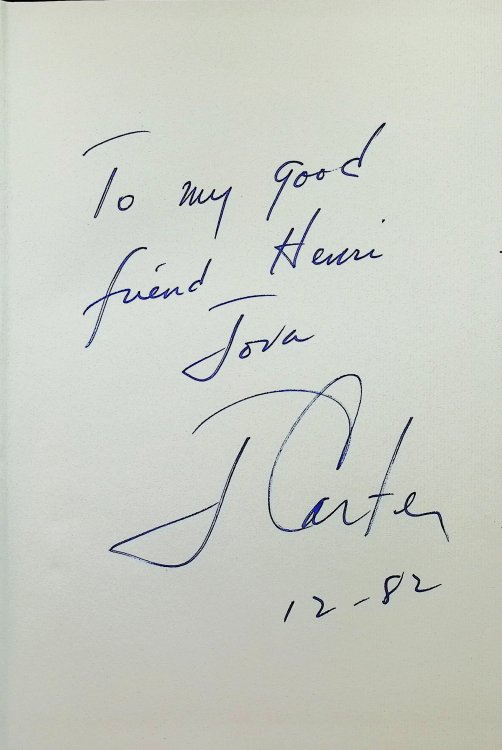 To my good
friend Henri
Jova
J Carter
12-82